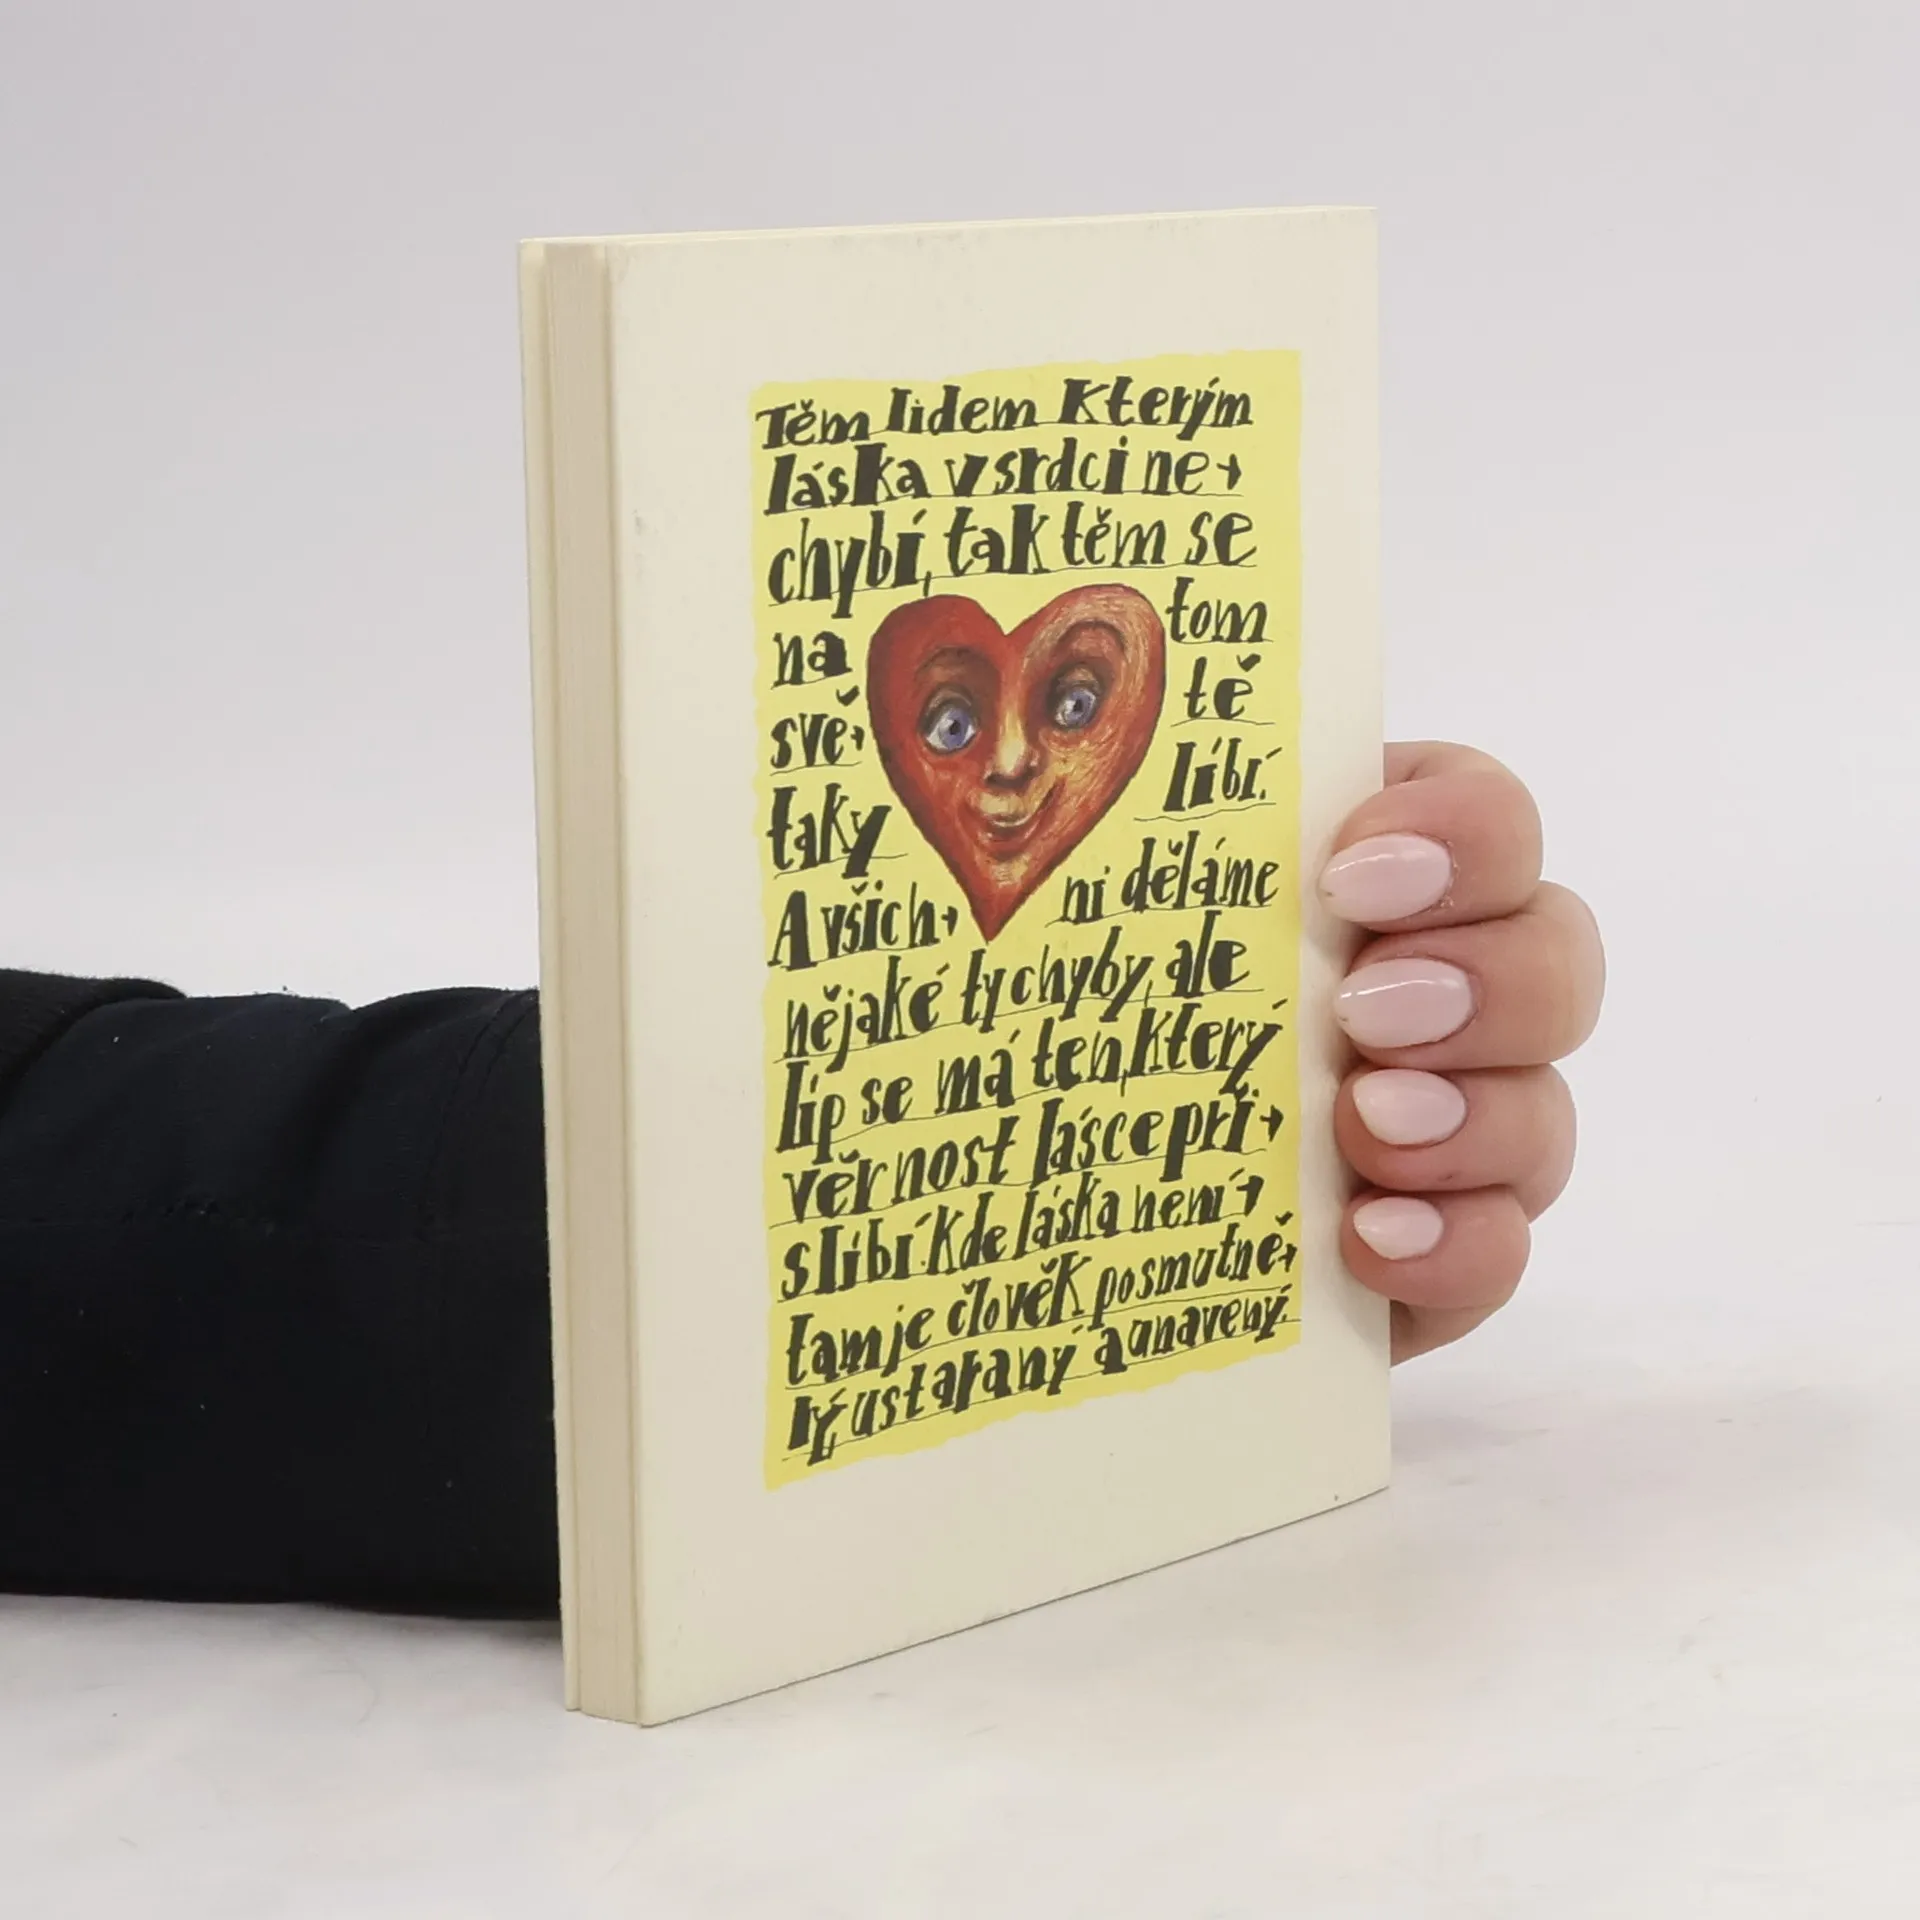 Těm lidem kterým
láska v srdci ne→
chybí, tak těm se
na tom
svě→ tě
taky líbí.
A všich→ ni děláme
nějaké ty chyby, ale
líp se má ten, který
věrnost lásce při→
slíbí. Kde láska není→
tam je člověk posmutně→
lý, ustaraný a unavený.